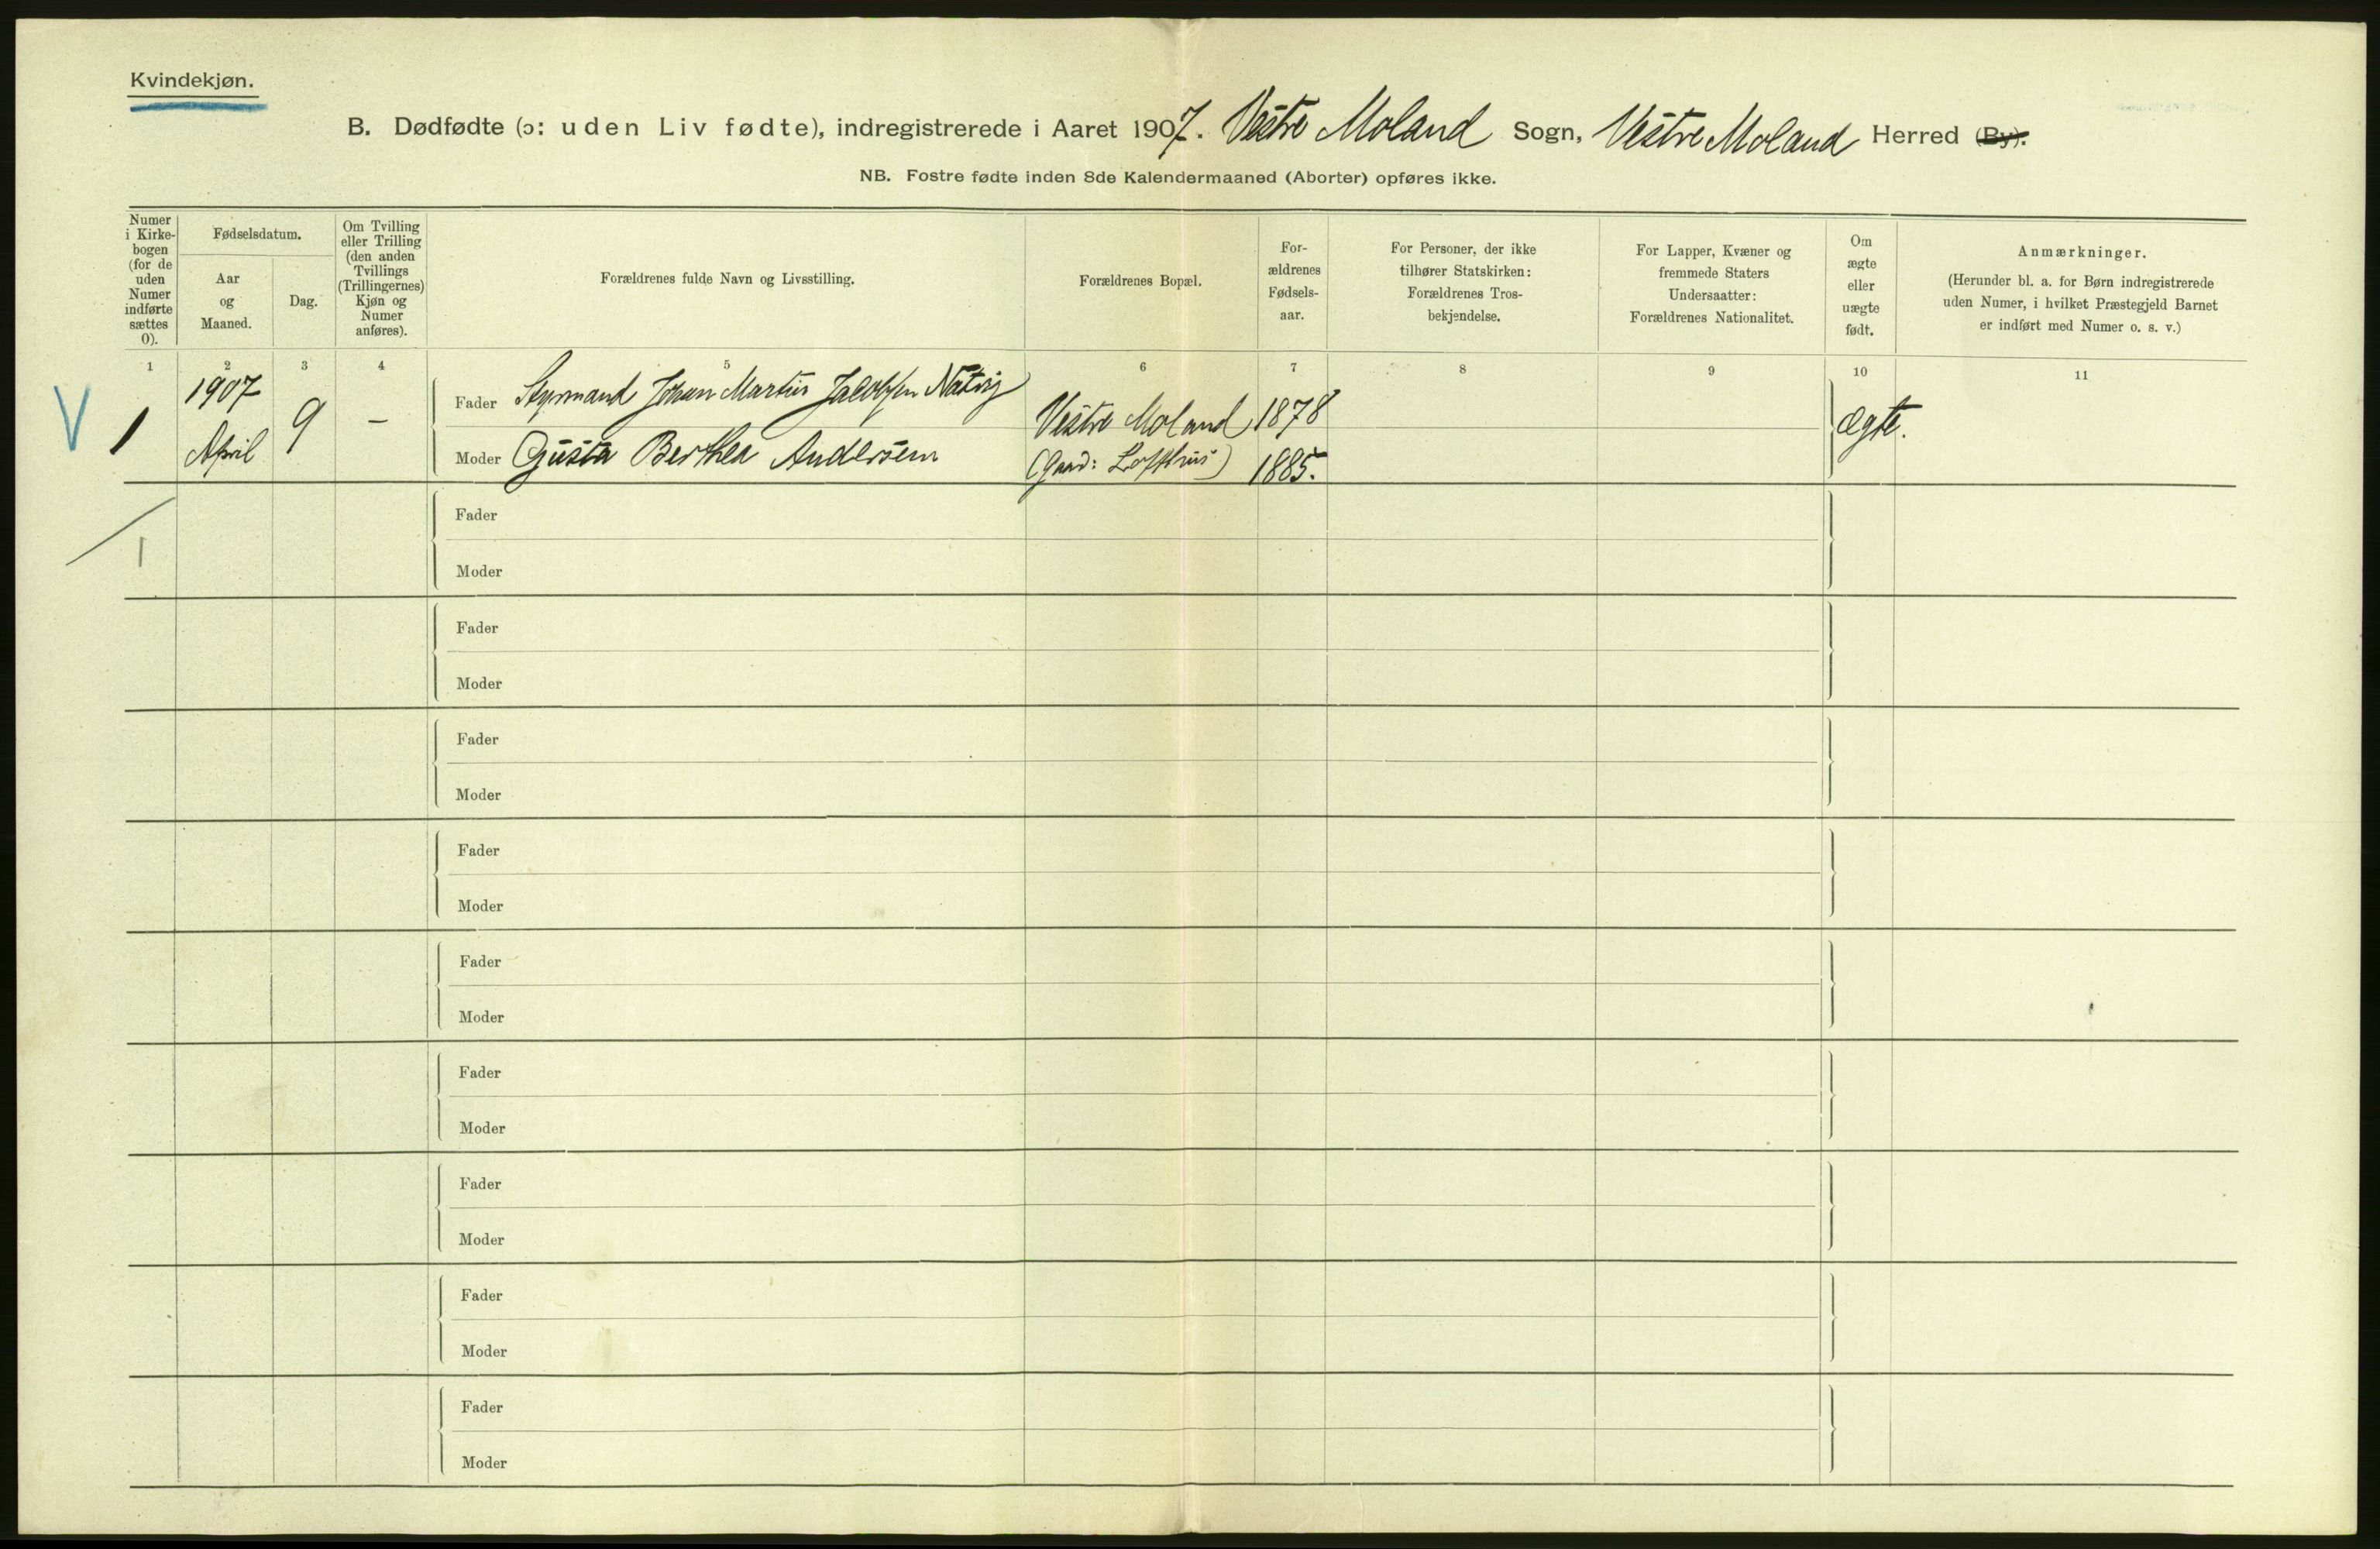 Kvindekjøn.
B. Dødfødte (ɔ: uden Liv fødte), indregistrerede i Aaret 1907. Vestre Moland Sogn, Vestre Moland Herred (By).
NB. Fostre fødte inden 8de Kalendermaaned (Aborter) opføres ikke.
Numer
i Kirke-
bogen
(for de
uden
Numer
indførte
sættes
0).
Fødselsdatum.
Aar
og
Maaned.
Dag.
Om Tvilling
eller Trilling
(den anden
Tvillings
(Trillingernes)
Kjøn og
Numer
anføres).
Forældrenes fulde Navn og Livsstilling.
Forældrenes Bopæl.
For-
ældrenes
Fødsels-
aar.
For Personer, der ikke
tilhører Statskirken:
Forældrenes Tros-
bekjendelse.
For Lapper, Kvæner og
fremmede Staters
Undersaatter:
Forældrenes Nationalitet.
Om
ægte
eller
uægte
født.
Anmærkninger.
(Herunder bl. a. for Børn indregistrerede
uden Numer, i hvilket Præstegjeld Barnet
er indført med Numer o. s. v.)
1 2 3 4 5 6 7 8 9 10 11
V 1
1907
April
9
–
Fader Styrmand Johan Martin Jacobsen Natvig
Moder Gusta Berthea Andersen
Vestre Moland
(Gaard: Lofthus)
1878
1885.
Ægte.
1
Fader
Moder
Fader
Moder
Fader
Moder
Fader
Moder
Fader
Moder
Fader
Moder
Fader
Moder
Fader
Moder
Fader
Moder